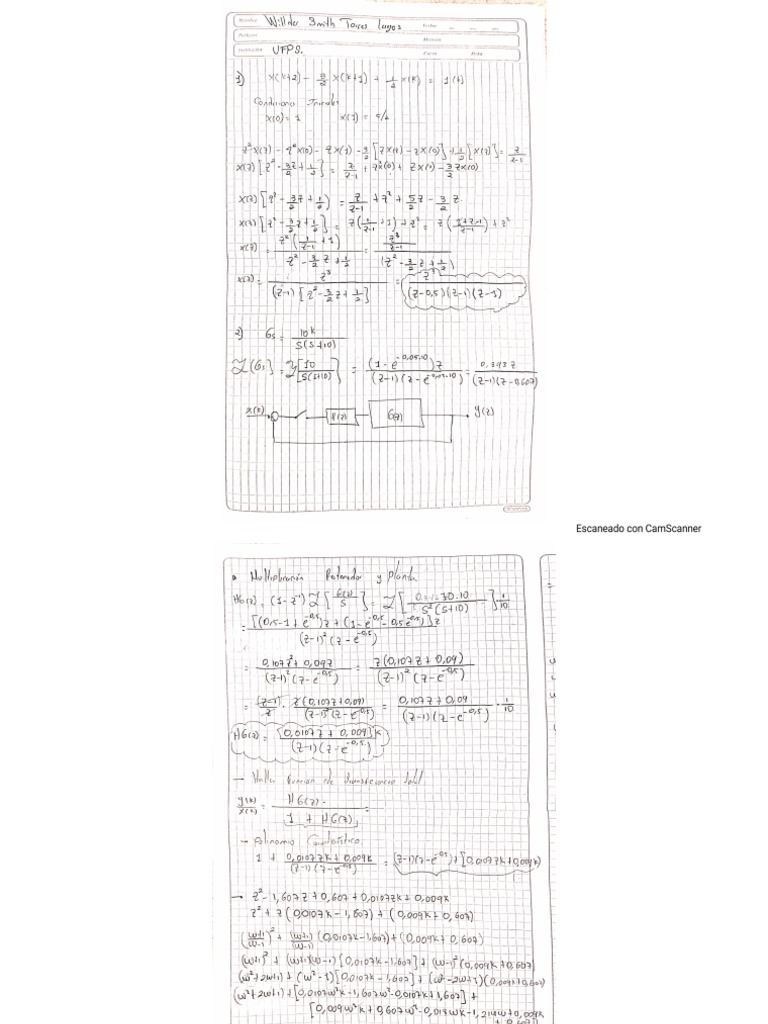 Willder Smith Torres Lagos
UFPS.
1) x(k+2) - 3/2 x(k+1) + 1/2 x(k) = 1(k)
Condiciones Iniciales
x(0) = 1 x(1) = 5/2
z² x(z) - z² x(0) - z x(1) - 3/2 [z x(z) - z x(0)] + 1/2 [x(z)] = z/(z-1)
x(z) [z² - 3z/2 + 1/2] = z/(z-1) + z² x(0) + z x(1) - 3/2 z x(0)
x(z) [z² - 3z/2 + 1/2] = z/(z-1) + z² + 5/2 z - 3/2 z.
x(z) [z² - 3/2 z + 1/2] = z(1/(z-1) + 1) + z² = z((1+z-1)/(z-1)) + z²
x(z) = z²(1/(z-1) + 1) / (z² - 3/2 z + 1/2) = (z³/(z-1)) / (z² - 3/2 z + 1/2)
x(z) = z³ / ((z-1)[z² - 3/2 z + 1/2]) = z³ / ((z-0,5)(z-1)(z-1))
2) Gs = 10k / (s(s+10))
Z{Gs} = Z[10 / (s(s+10))] = (1 - e^(-0,05·10))z / ((z-1)(z - e^(-0,05·10))) = 0,393z / ((z-1)(z-0,607))
x(z) H(z) G(z) y(z)
Escaneado con CamScanner
• Multiplicación Retenedor y Planta
HG(z) = (1-z⁻¹) Z[G(s)/s] = Z[ 10 / (s²(s+10)) ] 1/10
= [(0,5-1+e^(-0,5))z + (1-e^(-0,5)-0,5e^(-0,5))]z / ((z-1)²(z-e^(-0,5)))
= (0,107z² + 0,09z) / ((z-1)²(z-e^(-0,5))) = z(0,107z+0,09) / ((z-1)²(z-e^(-0,5)))
= (z-1)/z · z(0,107z+0,09) / ((z-1)²(z-e^(-0,5))) = (0,107z+0,09) / ((z-1)(z-e^(-0,5))) · 1/10
HG(z) = [0,0107z + 0,009]k / ((z-1)(z-e^(-0,5)))
→ Hallar función de transferencia total
y(k)/x(k) = HG(z) / (1 + HG(z)) =
- Polinomio Característico
1 + (0,0107zk + 0,009k) / ((z-1)(z-e^(-0,5))) = (z-1)(z-e^(-0,5)) + [0,0107zk+0,009k]
→ z² - 1,607z + 0,607 + 0,0107zk + 0,009k
z² + z(0,0107k - 1,607) + (0,009k + 0,607)
((w+1)/(w-1))² + ((w+1)/(w-1)) (0,0107k - 1,607) + (0,009k + 0,607)
(w+1)² + (w+1)(w-1)[0,0107k - 1,607] + (w-1)²(0,009k+0,607)
(w²+2w+1) + (w²-1)[0,0107k - 1,607] + (w²-2w+1)(0,009k+0,607)
(w²+2w+1) + [0,0107w²k - 1,607w² - 0,0107k + 1,607] +
[0,009w²k + 0,607w² - 0,018wk - 1,214w + 0,009k
+ 0,607]